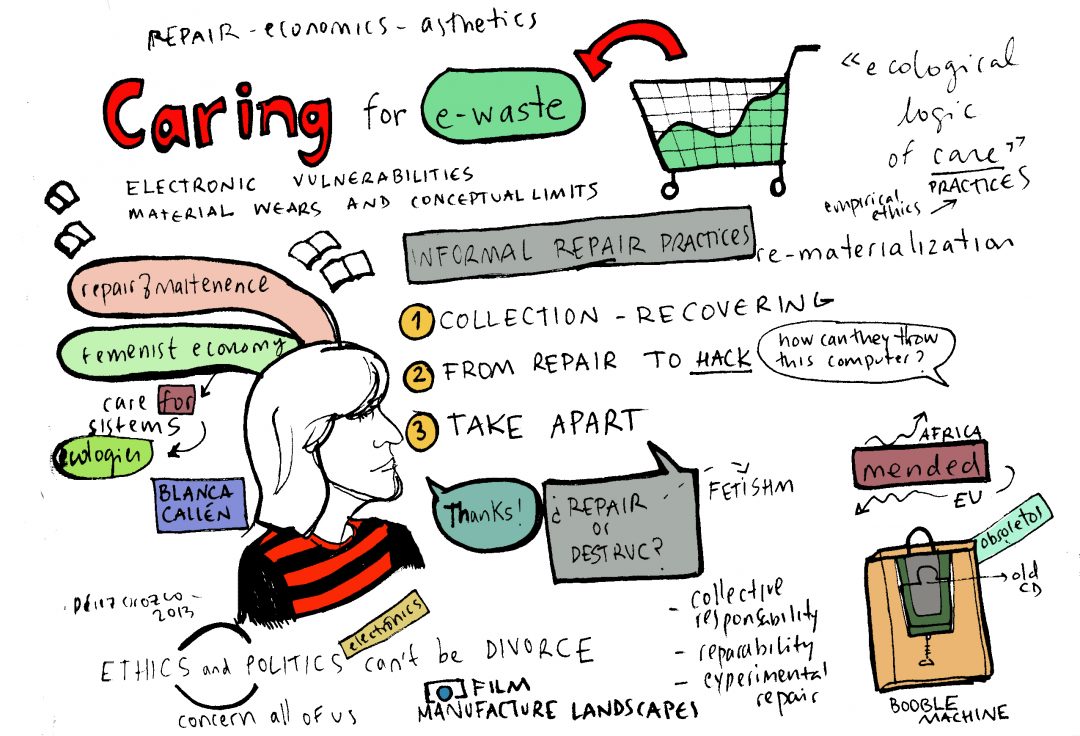 REPAIR - economics - asthetics
Caring for e-waste
"ecological
logic
of care"
PRACTICES
empirical
ethics
ELECTRONIC VULNERABILITIES
MATERIAL WEARS AND CONCEPTUAL LIMITS
INFORMAL REPAIR PRACTICES
re-materialization
repair & maltenence
femenist economy
care for
sistems
ecologies
BLANCA
CALLÉN
1 COLLECTION - RECOVERING
2 FROM REPAIR TO HACK
how can they throw
this computer?
3 TAKE APART
Thanks!
¿REPAIR
or
DESTRUC?
FETISHM
AFRICA
mended
EU
obsoletos
old
CD
BOOBLE
MACHINE
2013
electronics
ETHICS and POLITICS can't be DIVORCE
concern all of us
FILM
MANUFACTURE LANDSCAPES
- collective
responsability
- reparability
- experimental
repair